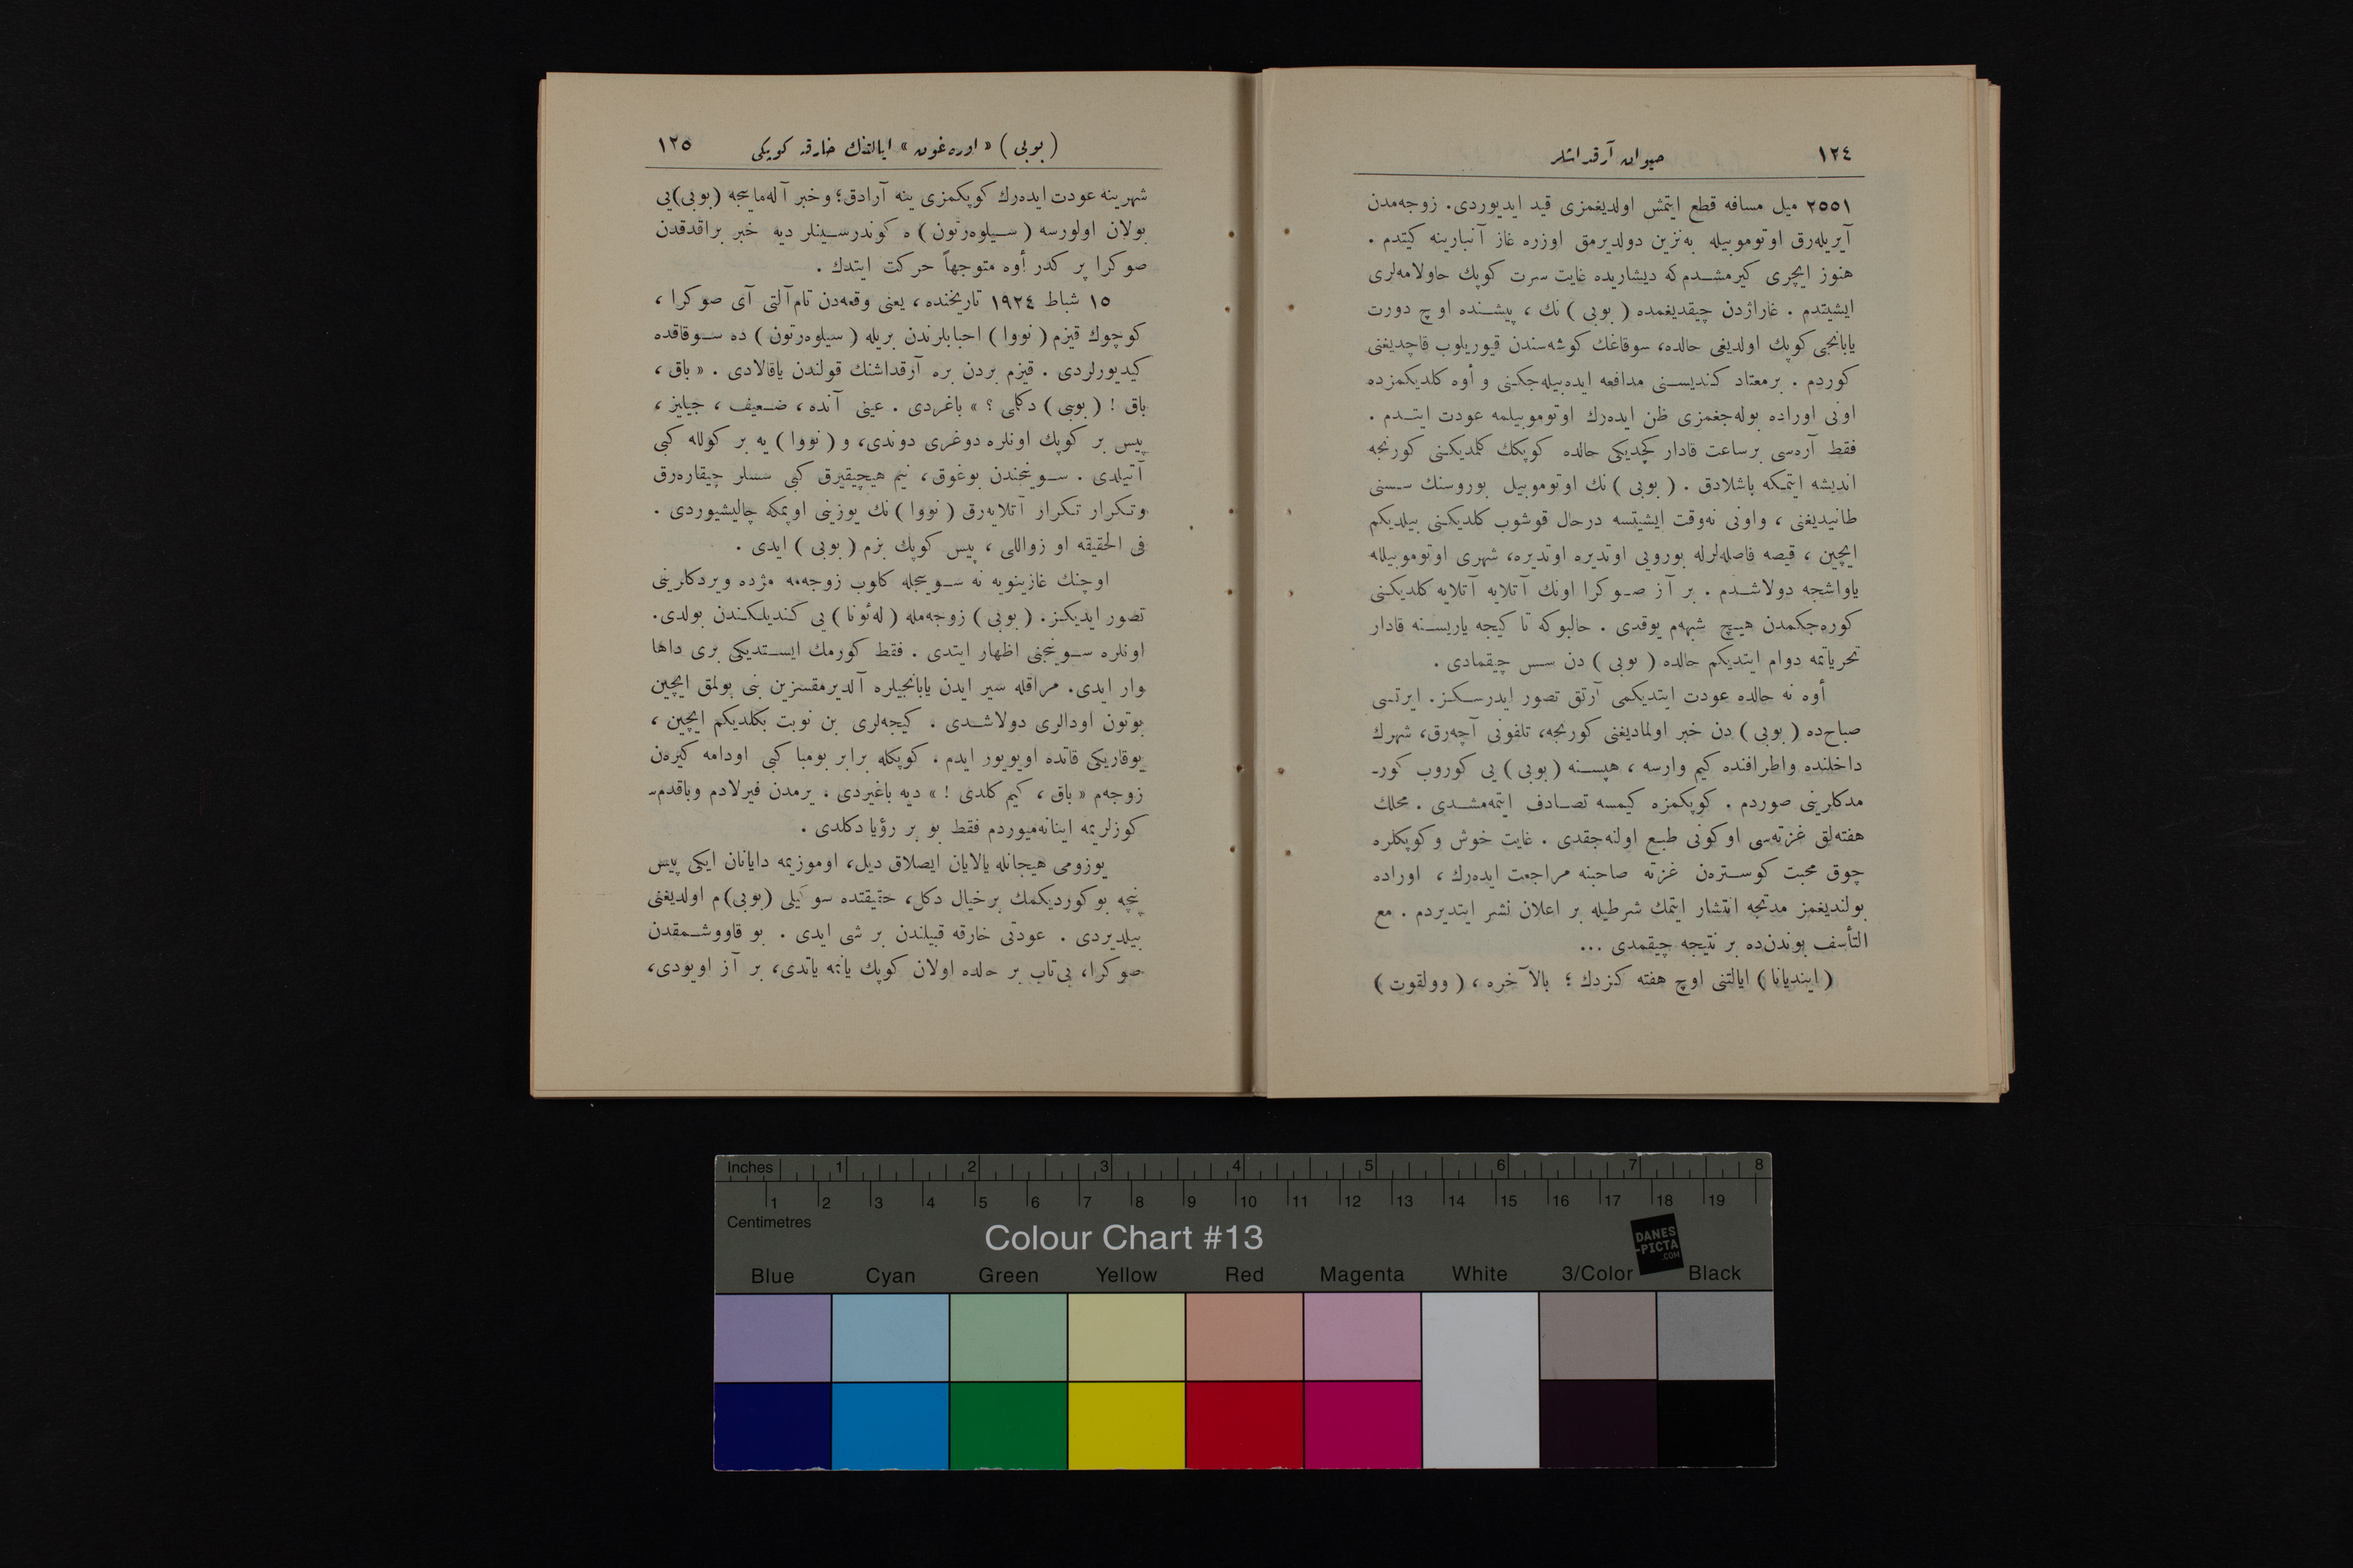 ١٢٤
حيوان آرقداشلر
٢٥٥١ ميل مسافه قطع ايتمش اولديغمزى قيد ايديوردى. زوجه‌مدن
آيريله‌رق اوتوموبيله به‌نزين دولديرمق اوزره غاز آنبارينه كيتدم .
هنوز ايچرى كيرمشدم كه ديشاريده غايت سرت كوپك حاولامه‌لرى
ايشيتدم . غاراژدن چيقديغمده ( بوبى ) نك ، پيشنده اوچ دورت
يابانجى كوپك اولديغى حالده، سوقاغك كوشه‌سندن قيوريلوب قاچديغنى
كوردم . برمعتاد كنديسنى مدافعه ايده‌بيله‌جكنى و أوه كلديكمزده
اونى اوراده بوله‌جغمزى ظن ايده‌رك اوتوموبيلمه عودت ايتدم .
فقط آره‌سى برساعت قادار كچديكى حالده كوپكك كلمديكنى كورنجه
انديشه ايتمكه باشلادق . ( بوبى ) نك اوتوموبيل بوروسنك سسنى
طانيديغنى ، واونى نه‌وقت ايشيتسه درحال قوشوب كلديكنى بيلديكم
ايچين ، قيصه فاصله‌لرله بورويى اوتديره اوتديره، شهرى اوتوموبيلله
ياواشجه دولاشدم . بر آز صوكرا اونك آتلايه آتلايه كلديكنى
كوره‌جكمدن هيچ شبهه‌م يوقدى . حالبوكه تا كيجه ياريسنه قادار
تحرياتمه دوام ايتديكم حالده ( بوبى ) دن سس چيقمادى .
أوه نه حالده عودت ايتديكمى آرتق تصور ايدرسكز. ايرتسى
صباح‌ده ( بوبى ) دن خبر اولماديغنى كورنجه، تلفونى آچه‌رق، شهرك
داخلنده واطرافنده كيم وارسه ، هپسنه ( بوبى ) يى كوروب كور-
مدكلرينى صوردم . كوپكمزه كيمسه تصادف ايتمه‌مشدى . محلك
هفته‌لق غزته‌سى او كونى طبع اولنه‌جقدى . غايت خوش و كوپكلره
چوق محبت كوسترەن غزته صاحبنه مراجعت ايده‌رك ، اوراده
بولنديغمز مدتجه انتشار ايتمك شرطيله بر اعلان نشر ايتديردم . مع
التأسف بوندن‌ده بر نتيجه چيقمدى ...
( اينديانا ) ايالتنى اوچ هفته كزدك ؛ بالآخره ، ( وولقوت )
( بوبى ) « اوره‌غون » ايالتنك خارقه كوپكى
١٢٥
شهرينه عودت ايده‌رك كوپكمزى ينه آرادق؛ وخبر آله‌ماينجه (بوبى)يى
بولان اولورسه ( سيلوه‌رتون ) ه كوندرسينلر ديه خبر براقدقدن
صوكرا پر كدر أوه متوجهاً حركت ايتدك .
١٥ شباط ١٩٢٤ تاريخنده ، يعنى وقعه‌دن تام‌آلتى آى صوكرا ،
كوچوك قيزم ( نووا ) احبابلرندن بريله ( سيلوه‌رتون ) ده سوقاقده
كيديورلردى . قيزم بردن بره آرقداشنك قولندن ياقالادى . « باق ،
باق ! ( بوبى ) دكلمى ؟ » باغردى . عينى آنده ، ضعيف ، جيليز ،
پيس بر كوپك اونلره دوغرى دوندى، و ( نووا ) يه بر كولله كبى
آتيلدى . سوينجندن بوغوق ، نيم هيچيقيرق كبى سسلر چيقاره‌رق
وتكرار تكرار آتلايه‌رق ( نووا ) نك يوزينى اوپمكه چاليشيوردى .
فى الحقيقه او زواللى ، پيس كوپك بزم ( بوبى ) ايدى .
اوچنك غازينويه نه سوينجله كلوب زوجه‌مه مژده ويردكلرينى
تصور ايديكز. ( بوبى ) زوجه‌مله ( له‌ئونا ) يى كنديلكندن بولدى.
اونلره سوينجنى اظهار ايتدى . فقط كورمك ايستديكى برى داها
وار ايدى. مراقله سير ايدن يابانجيلره آلديرمقسزين بنى بولمق ايچين
بوتون اودالرى دولاشدى . كيجه‌لرى بن نوبت بكلديكم ايچين ،
يوقاريكى قاتده اويويور ايدم . كوپكله برابر بومبا كبى اودامه كيره‌ن
زوجه‌م « باق ، كيم كلدى ! » ديه باغيردى . يرمدن فيرلادم وباقدم-
كوزلريمه اينانه‌ميوردم فقط بو بر رؤيا دكلدى .
يوزومى هيجانله يالايان ايصلاق ديل، اوموزيمه دايانان ايكى پيس
پنچه بو كورديكمك برخيال دكل، حقيقتده سوكيلى (بوبى)م اولديغنى
بيلديردى . عودتى خارقه قبيلندن بر شى ايدى . بو قاووشمقدن
صوكرا، بى‌تاب بر حالده اولان كوپك يانمه ياتدى، بر آز اويودى،
Inches 1 2 3 4 5 6 7 8
1 2 3 4 5 6 7 8 9 10 11 12 13 14 15 16 17 18 19
Centimetres
Colour Chart #13
DANES
-PICTA
.COM
Blue Cyan Green Yellow Red Magenta White 3/Color Black